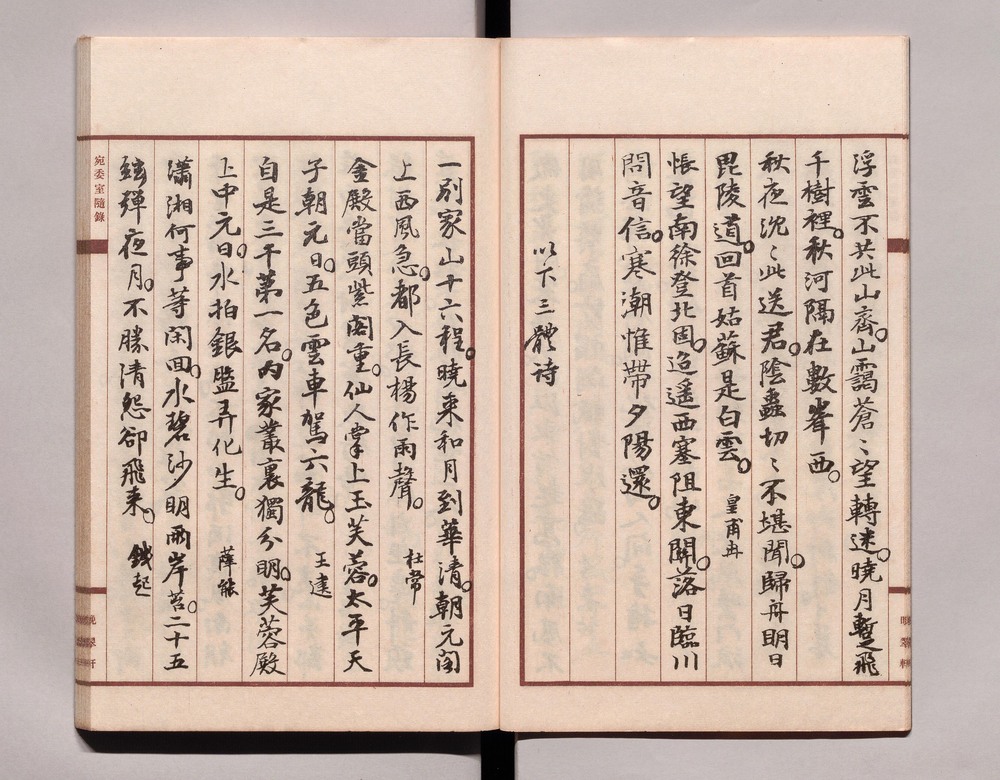 浮雲不共此山齊。山靄蒼〻望轉迷。曉月暫飛
千樹裡。秋河隔在數峯西。
秋夜沈〻此送君。陰蟲切〻不堪聞。歸舟明日
毘陵道。回首姑蘇是白雲。 皇甫冉
悵望南徐登北固。迢遥西塞阻東關。落日臨川
問音信。寒潮惟帶夕陽還。
以下三體詩
一別家山十六程。曉來和月到華清。朝元閣
上西風急。都入長楊作雨聲。 杜常
金殿當頭紫閣重。仙人掌上玉芙蓉。太平天
子朝元日。五色雲車駕六龍。 王建
自是三千第一名。内家叢裏獨分明。芙蓉殿
上中元日。水拍銀盤弄化生。 薛能
瀟湘何事等閑回。水碧沙明兩岸苔。二十五
絃彈夜月。不勝清怨卻飛来。 錢起
宛委室隨錄
晩翠軒
晩翠軒